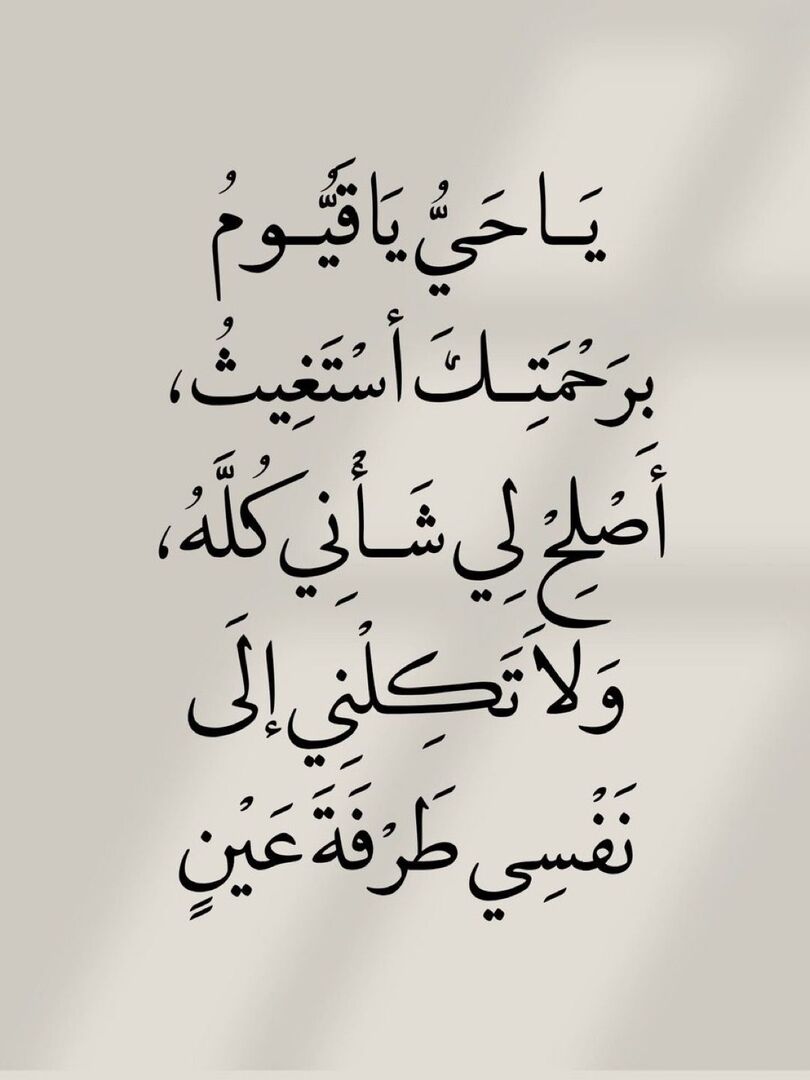 يَـا حَيُّ يَا قَيُّـومُ
برَحْمَتِـكَ أسْتَغِيثُ،
أَصْلِحْ لِي شَـأْنِي كُلَّهُ،
وَلاَ تَكِلْنِي إلَى
نَفْسِي طَرْفَةَ عَيْنٍ